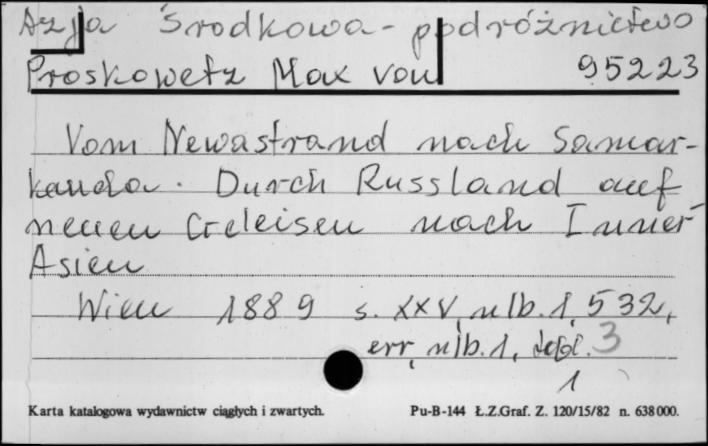 Azja Środkowa - podróżnictwo
Proskowetz Max von 95223
Vom Newastrand nach Samar-
kanda. Durch Russland auf
neuen Geleisen nach Inner
Asien
Wien 1889 s. XXV, nlb. 1, 532,
err, nlb. 1, 3
1
Karta katalogowa wydawnictw ciągłych i zwartych. Pu-B-144 Ł.Z.Graf. Z. 120/15/82 n. 638000.